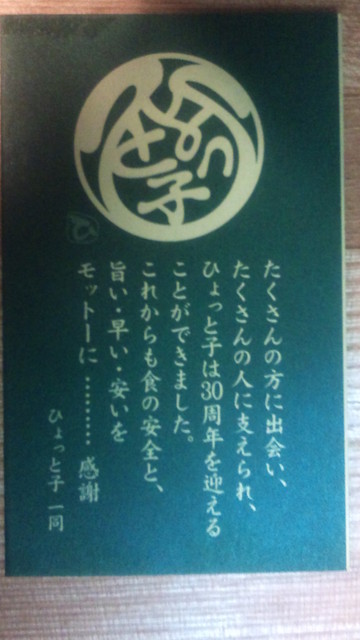 ひょっと子
たくさんの方に出会い、
たくさんの人に支えられ、
ひょっと子は30周年を迎える
ことができました。
これからも食の安全と、
旨い・早い・安いを
モットーに………感謝
ひょっと子 一同